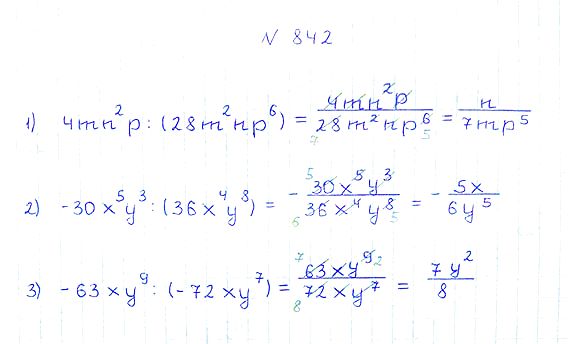 N 842
1) 4mn²p : (28m²np⁶) = 4mn²p / 28m²np⁶ 7 5 = n / 7mp⁵
2) -30x⁵y³ : (36x⁴y⁸) = - 5 30x⁵y³ / 6 36x⁴y⁸ 5 = - 5x / 6y⁵
3) -63xy⁹ : (-72xy⁷) = 7 63xy⁹ 2 / 8 72xy⁷ = 7y² / 8